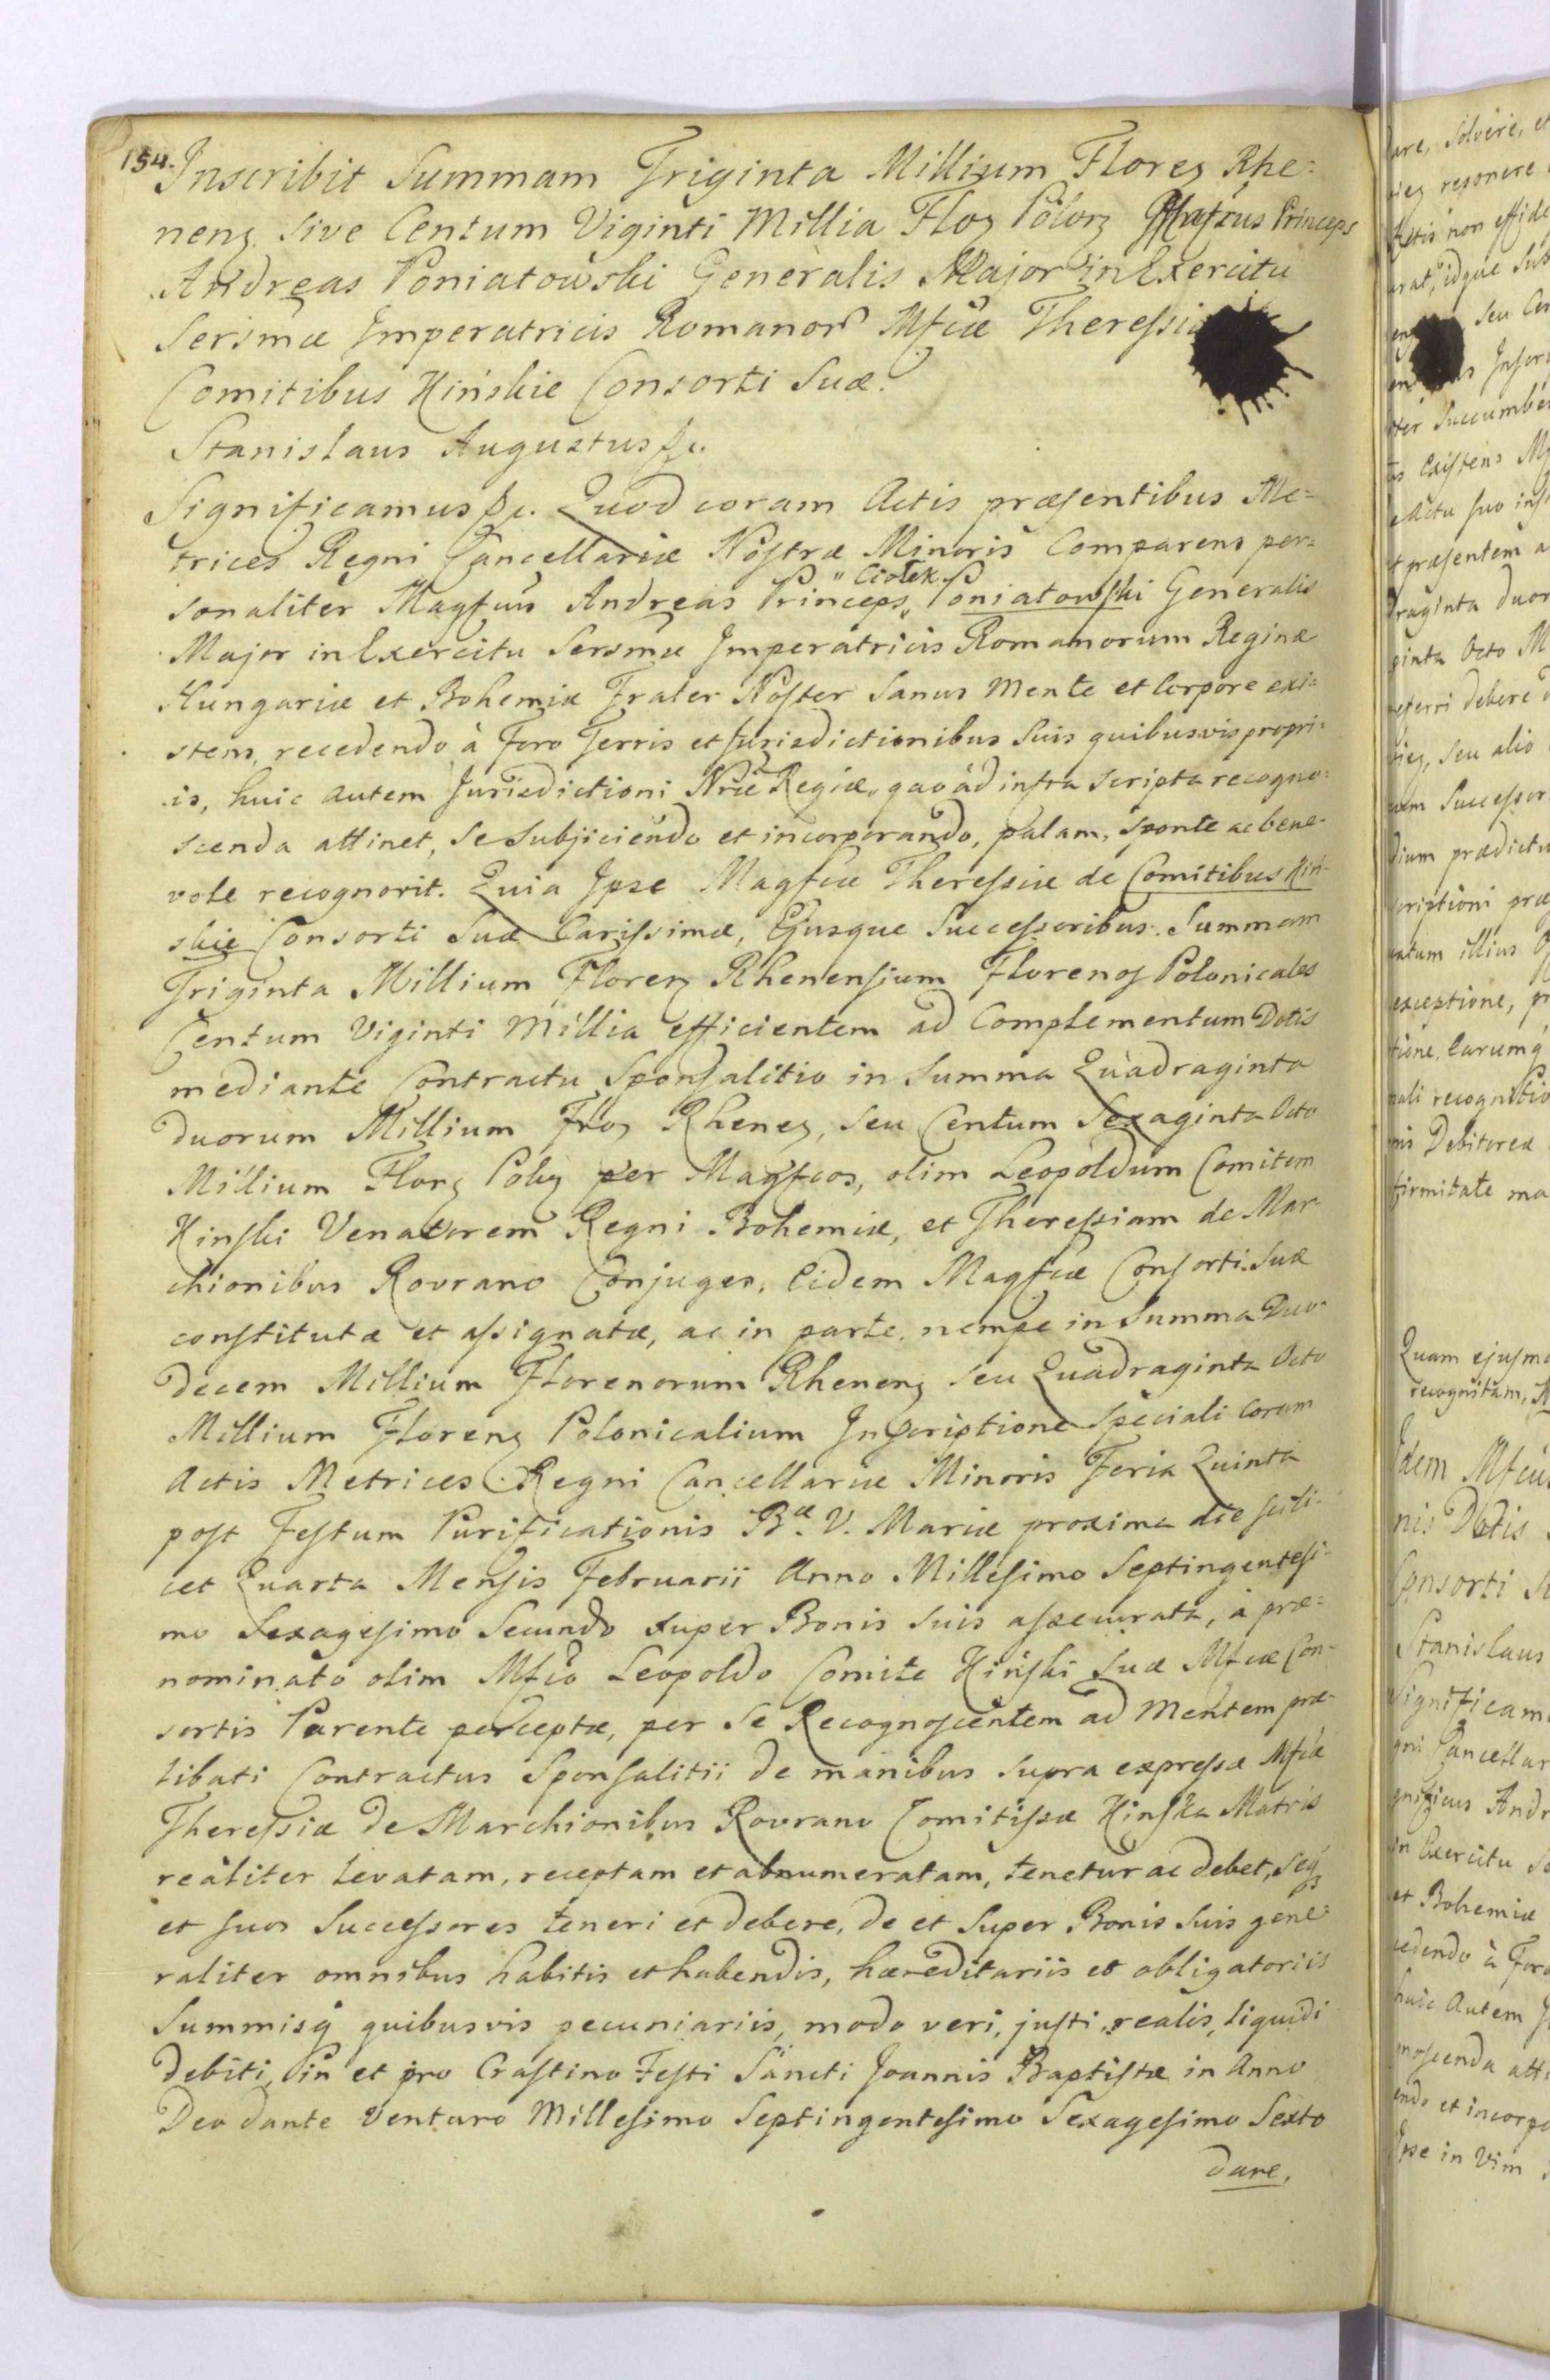 154.
Inscribit Summam Triginta Millium Florez Rhe=
nenz. sive Centum Viginti Millia Floz Polorz Princeps
Andreas Poniatowski Generalis Major in Exercitu
Serismæ Imperatricis Romanor Mfcæ Theressiæ
Comitibus Kińskie Consorti Suæ.
Stanislaus Augustus &c.
Significamus &c. Quod coram Actis præsentibus Me=
trices Regni Cancellariæ Nostræ Minoris Comparens per=
sonaliter Magfcus Andreas Princeps "Ciołek" Poniatowski Generalis
Major in Exercitu Sersmæ Imperatricis Romanorum Reginæ
Hungariæ et Bohemiæ Frater Noster Sanus Mente et Corpore exi=
stens, recedendo à Foro Terris et Jurisdictionibus Suis quibusvis propri=
is, huic autem Jurisdictioni Nræ Regiæ, quo ad infra scripta recogno=
scenda attinet, se Subjiciendo et incorporando, palam, sponte ac bene-
vole recognovit. Quia Ipse Magfcæ Theressiæ de Comitibus Kiń-
skie Consorti Suæ Carissimæ, Ejusque Successoribus. Summam
Triginta Millium Florenz Rhenensium Florenos Polonicales
Centum Viginti Millia efficientem ad Complementum Dotis
mediante Contractu Sponsalitio in Summa Quadraginta
duorum Millium Floz Rhenez, seu Centum Sexaginta Octo
Millium Florz Polz per Magfcos, olim Leopoldum Comitem
Kinski Venatorem Regni Bohemiæ, et Theressiam de Mar-
chionibus Rovrano Conjuges, Eidem Magfcæ Consorti Suæ
constitutæ et assignatæ, ac in parte, nempe in Summa Duo-
decem Millium Florenorum Rhenenz seu Quadraginta Octo
Millium Florenz Polonicalium Inscriptione Speciali coram
Actis Metrices Regni Cancellariæ Minoris Feria Quinta
post Festum Purificationis Bæ. V. Mariæ proxima die scili-
cet Quarta Mensis Februarii Anno Millesimo Septingentesi-
mo Sexagesimo Secundo super Bonis suis assecurata, à præ=
nominato olim Mfco Leopoldo Comite Kiński Suæ Mfcæ Con-
sortis Parente perceptæ, per se Recognoscentem ad Mentem præ-
libati Contractus Sponsalitii de manibus supra expressæ Mfcæ
Theressiæ de Marchionibus Rovrano Comitissæ Kinska Matris
realiter levatam, receptam et abnumeratam, tenetur ac debet, seqs
et suos Successores teneri et debere, de et super Bonis suis gene=
raliter omnibus habitis et habendis, hæreditariis et obligatoriis
Summisq quibusvis pecuniariis, modo veri, justi, realis, liquidi
debiti, in et pro Crastino Festi Sancti Joannis Baptistæ in Anno
Deo dante Venturo Millesimo Septingentesimo Sexagesimo Sexto
dare,